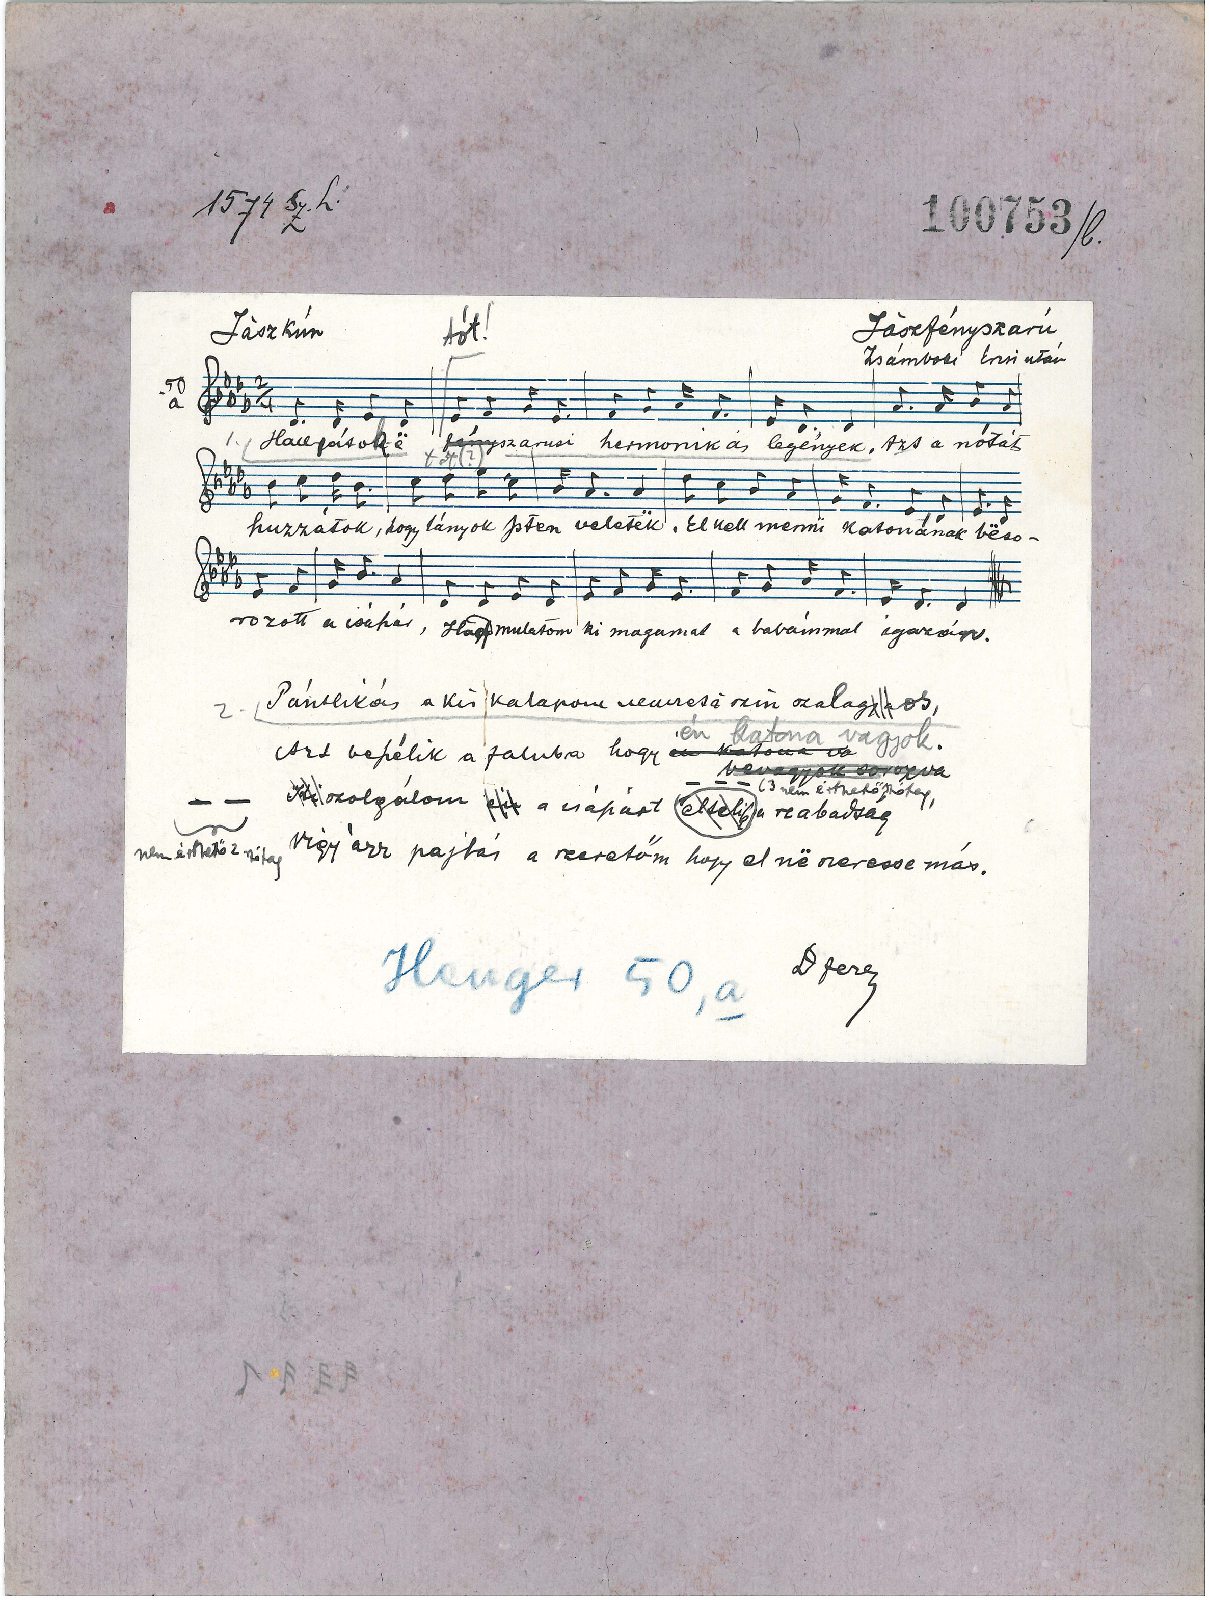 1574 Sz. h.
100753/b.
Jászkún
tót!
Jászfényszarú
Zsámboki Erzsi után
50
a
2/4
1. Hallgassák ë fényszarusi hermonikás legények. Azt a nótát
tót (?)
huzzátok, hogy lányok Isten veletëk. El kell menni katonának bëso-
rozott a császár, Hagy mulatom ki magamat a babámmal igazán.
2. Pántlikás a kis kalapom nemzeti szin szalagos,
én katona vagyok.
Azt bepélik a faluba hogy en katona va
bevagyok sorozva
(3 nem érthető szótag,
_ _ Ki szolgálom a császárt elselit a szabadság
nem érthető 2 szótag
Vigyázz pajtás a szeretőm hogy el në szeresse más.
Henger 50, a
D fere